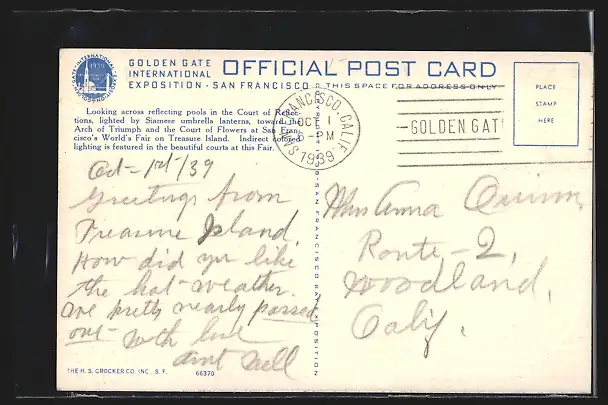 GOLDEN GATE
INTERNATIONAL
EXPOSITION · SAN FRANCISCO
OFFICIAL POST CARD
THIS SPACE FOR ADDRESS ONLY
GOLDEN GATE INTERNATIONAL EXPOSITION
1939
SAN FRANCISCO
PLACE
STAMP
HERE
SAN FRANCISCO, CALIF.
OCT 1
PM
1939
GOLDEN GAT
Looking across reflecting pools in the Court of Reflec-
tions, lighted by Siamese umbrella lanterns, toward the
Arch of Triumph and the Court of Flowers at San Fran-
cisco's World's Fair on Treasure Island. Indirect colored
lighting is featured in the beautiful courts at this Fair.
Oct-1st/39
Greetings from
Treasure Island,
How did you like
the hot-weather.
We pretty nearly passed
out- with love
aunt Nell
Miss Anna Quinn,
Route-2,
Woodland,
Calif.
SAN FRANCISCO EXPOSITION
THE H. S. CROCKER CO. INC., S. F.
66370